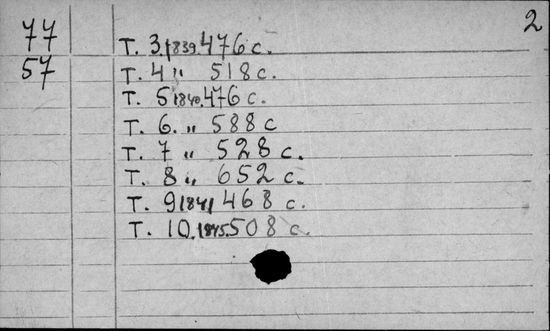 2
77
57
Т. 3. 1839. 476 с.
Т. 4 „ 518 с.
Т. 5 1840. 476 с.
Т. 6. „ 588 с
Т. 7 „ 528 с.
Т. 8 „ 652 с.
Т. 9 1841 468 с.
Т. 10. 1845. 508 с.